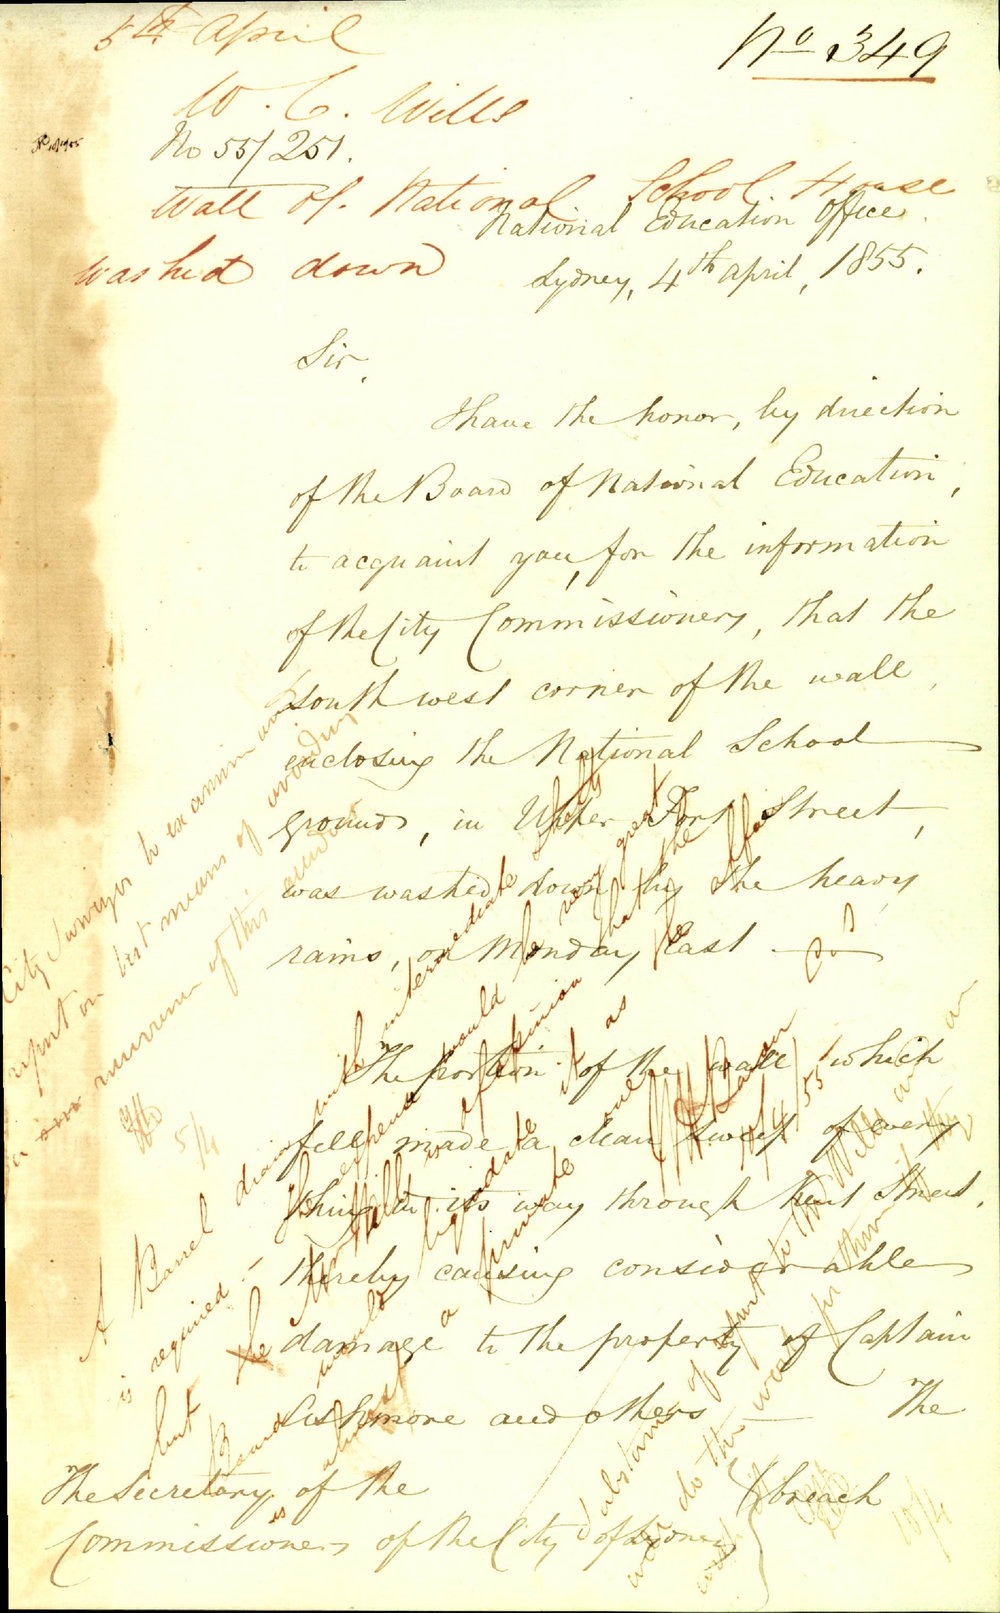 5th April
No 349
W. C. Wills
No 55/251.
Wall of National School House
washed down
National Education Office.
Sydney, 4th April, 1855.
Sir,
I have the honor, by direction
of the Board of National Education,
to acquaint you, for the information
of the City Commissioners, that the
south west corner of the wall,
enclosing the National School
grounds, in Upper Fort Street,
was washed down by the heavy
rains, on Monday last
The portion of the wall which
fell made a clean sweep of every
thing in its way through Kent Street,
thereby causing considerable
damage to the property of Captain
and others The
The Secretary of the
Commissioners of the City of Sydney
breach
City Surveyor to examine and
report on best means of avoiding
a recurrence of this
5/4
A Barrel drain with intermediate
is required. The expense would be very great
but Mr Wills is of opinion that the
Board would liquidate it as the
almost a private one
10/4/55
Substance of report to Mr Wills
10/4